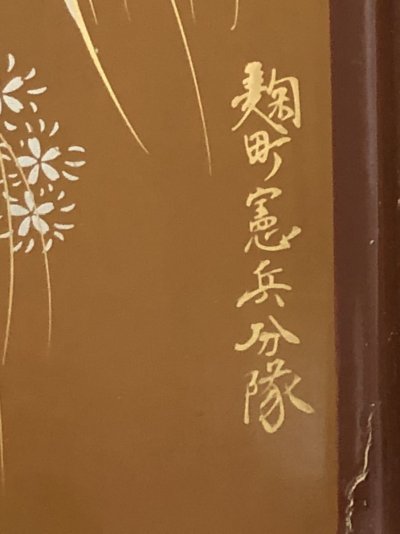 麹町憲兵分隊